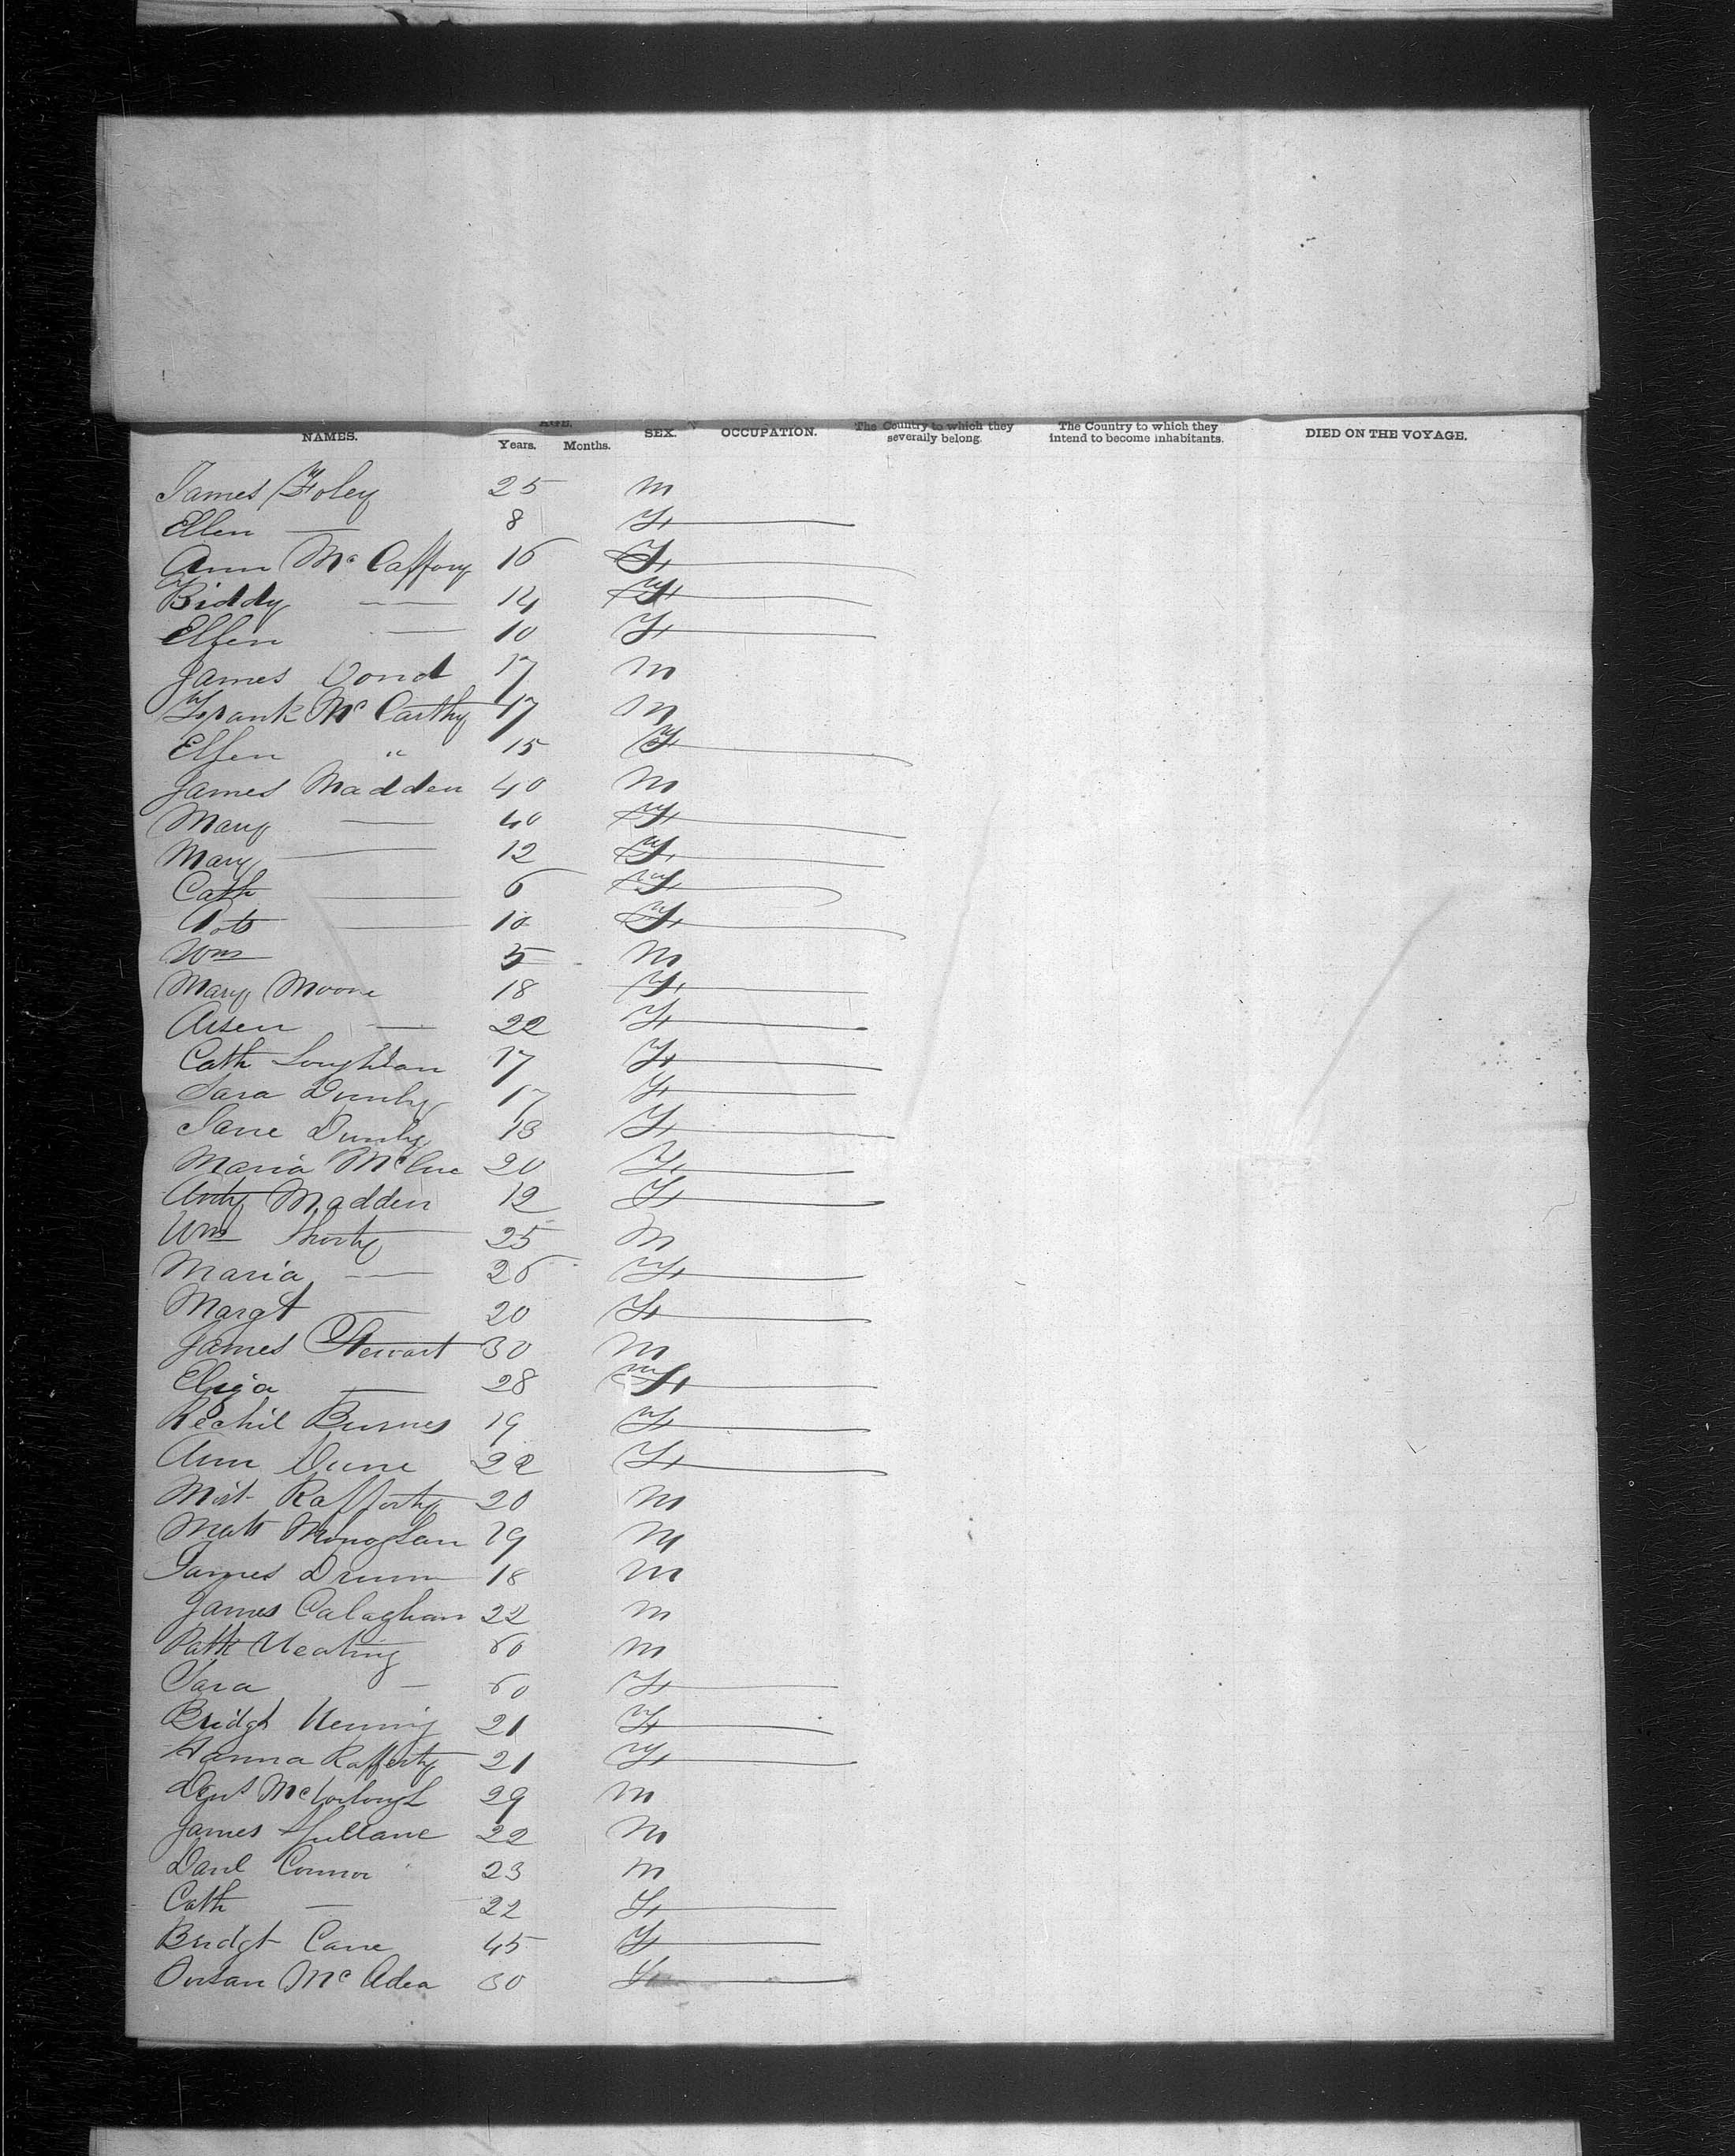 NAMES. AGE. Years. Months. SEX. OCCUPATION. The Country to which they severally belong. The Country to which they intend to become inhabitants. DIED ON THE VOYAGE.
James Foley 25 M
Ellen — 8 F
Ann McCaffory 16 F
Biddy — 14 F
Ellen — 10 F
James Cond 17 M
Frank McCarthy 17 M
Ellen " 15 F
James Madden 40 M
Mary — 40 F
Mary — 12 F
Cath — 6 F
— 10 F
Wm 5 M
Mary Moore 18 F
— 22 F
Cath Loughlan 17 F
Sara Dunly 17 F
Jane Dunly 18 F
Maria McCue 20 F
Andy Madden 12 F
Wm 25 M
Maria — 26 F
Margt — 20 F
James Stewart 30 M
Eliza — 28 F
Rechil Burnes 19 F
Ann Dune 22 F
Rafforty 20 M
Monoghan 19 M
James Drum 18 M
James Calaghan 22 M
Patk Keating 60 M
Sara — 60 F
Bridgt 21 F
Hanna Rafferty 21 F
29 M
James Hullane 22 M
Danl Connor 23 M
Cath — 22 F
Bridgt Cane 45 F
McAdea 30 F